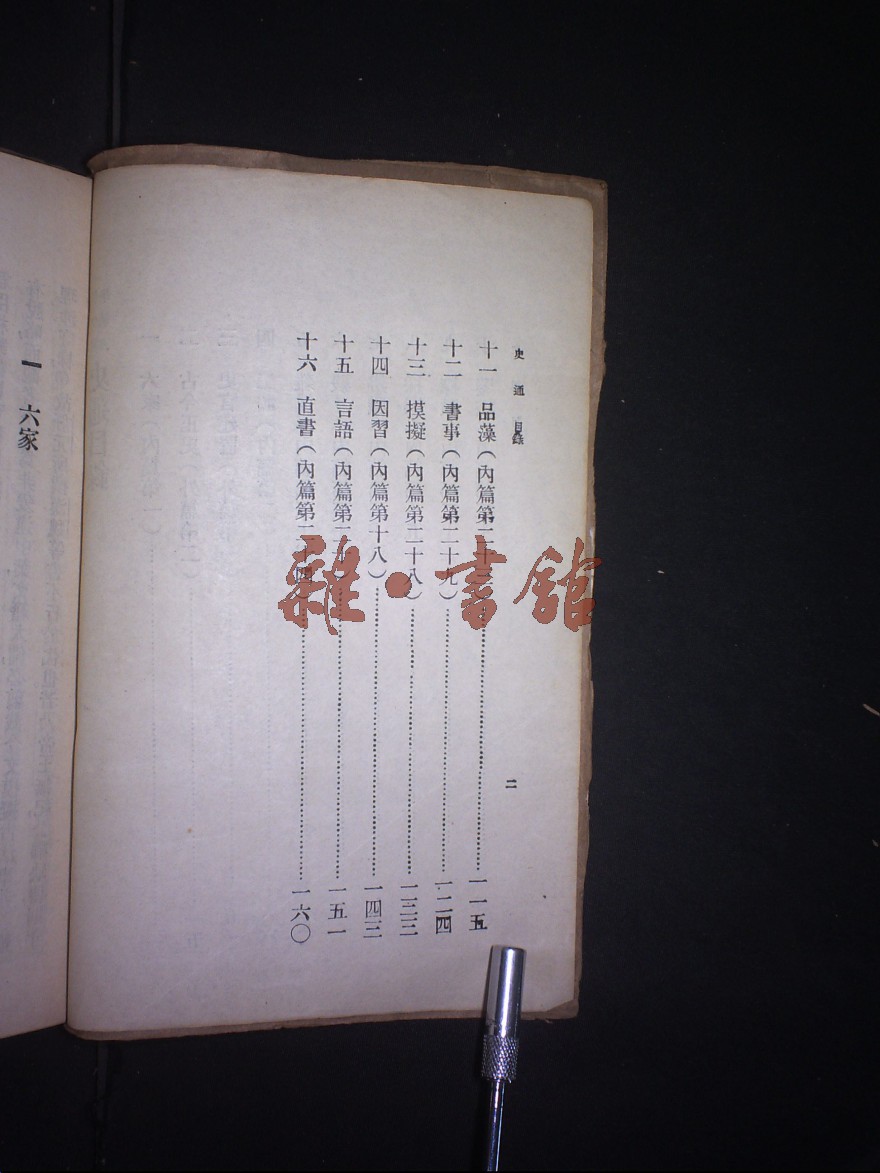 史通 目錄
二
十一 品藻(內篇第二十三)……一一五
十二 書事(內篇第二十九)……一二四
十三 摸擬(內篇第二十八)……一三三
十四 因習(內篇第十八)……一四三
十五 言語(內篇第二十)……一五一
十六 直書(內篇第二十四)……一六〇
一 六家
雜·書館